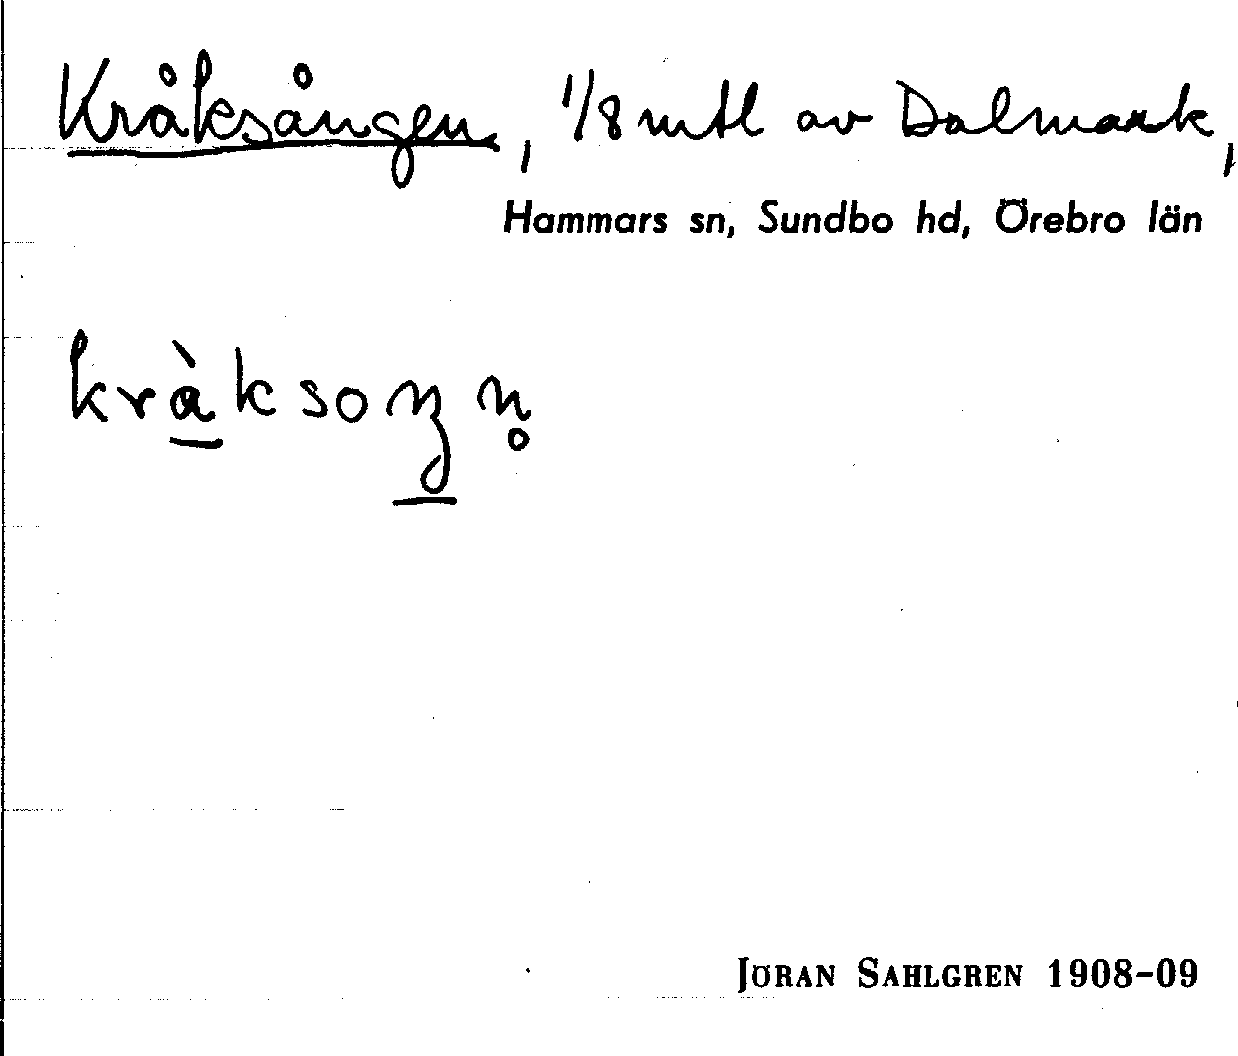 Kråksången, 1/8 mtl av Dalmark,
Hammars sn, Sundbo hd, Örebro län
kràksoŋn̥
JÖRAN SAHLGREN 1908–09